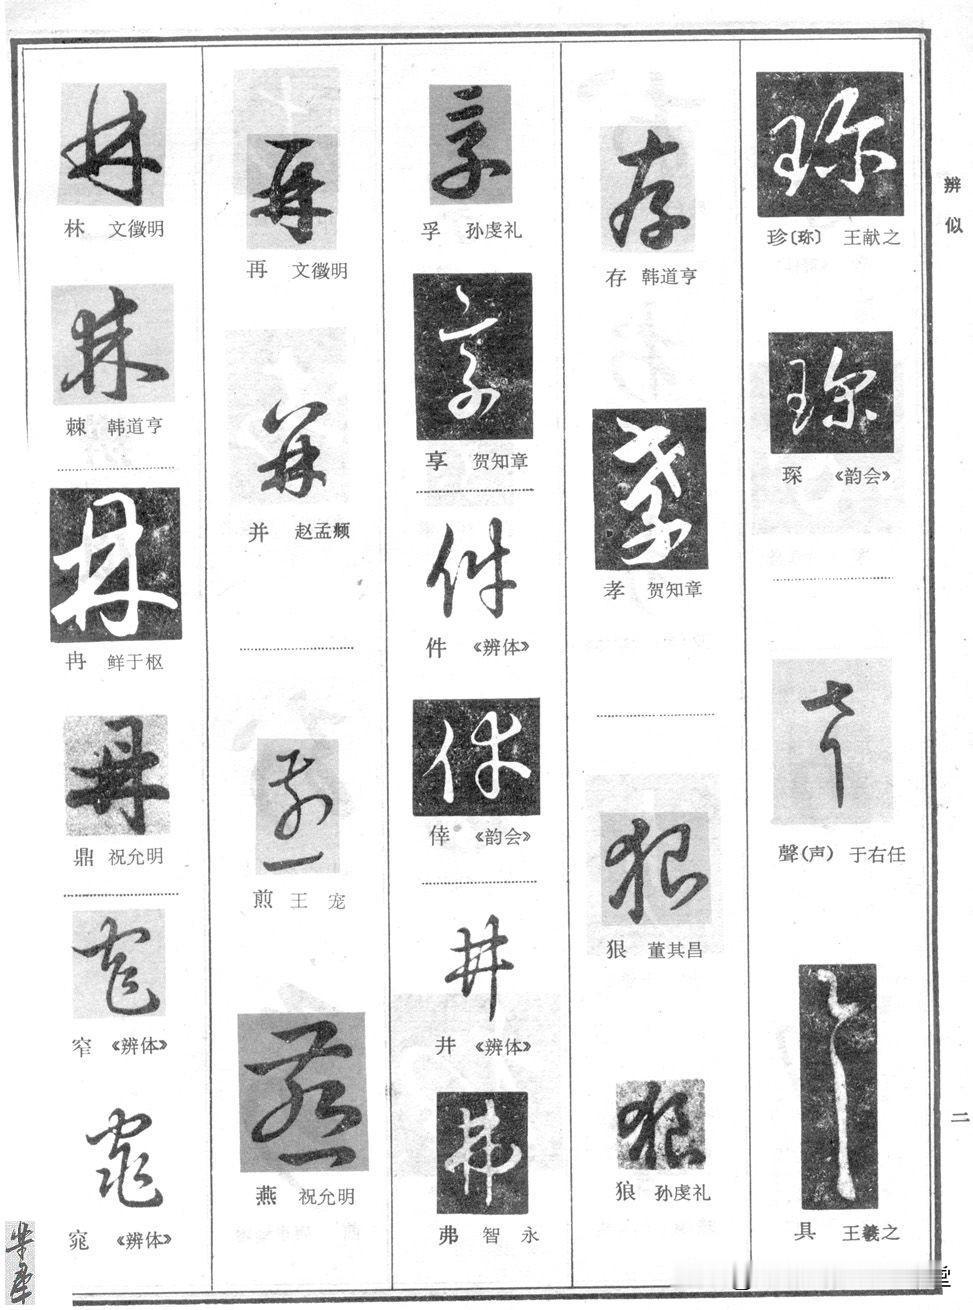 辨似
珍〔珎〕 王献之
琛 《韵会》
聲(声) 于右任
具 王羲之
二
存 韩道亨
孝 贺知章
狠 董其昌
狼 孙虔礼
孚 孙虔礼
享 贺知章
件 《辨体》
倖 《韵会》
井 《辨体》
弗 智永
再 文徵明
并 赵孟頫
煎 王宠
燕 祝允明
林 文徵明
棘 韩道亨
冉 鲜于枢
鼎 祝允明
窄 《辨体》
窕 《辨体》